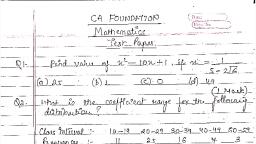 CA FOUNDATION
Mathematics
Test Paper
Q1- Find value of x² - 10x + 1, if x = 1 / 5 - 2√6
(a) 25 (b) 1 (c) 0 (d) 49
(1 Mark)
Q2. What is the coefficient range for the following distribution?
Class Interval :- 10-19 20-29 30-39 40-49 50-59
11 25 16 4 3